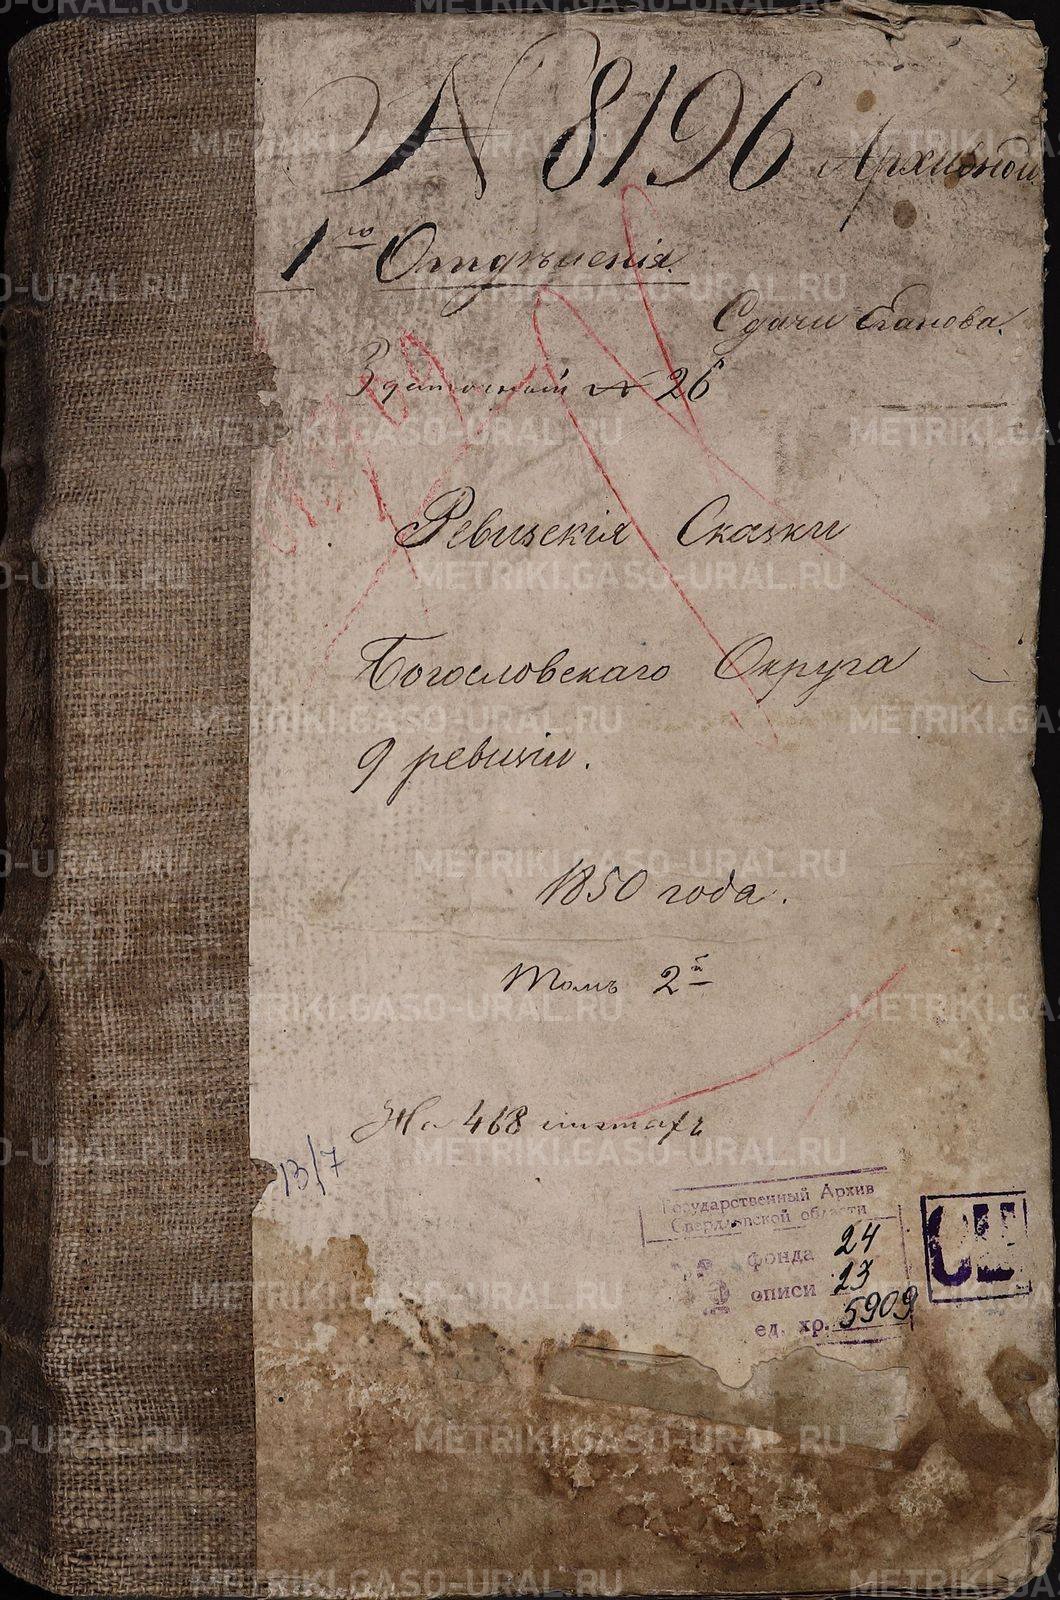 N 8196 Архивной
1го Отдѣленія.
Сдачи Стаnова.
Здаточный № 26
Ревизскія Сказки
Богословскаго Округа
9 ревизіи.
1850 года.
Томъ 2й
На 468 листахъ
13/7
Государственный Архив
Свердловской области
№ фонда 24
№ описи 23
ед. хр. 5909
METRIKI.GASO-URAL.RU